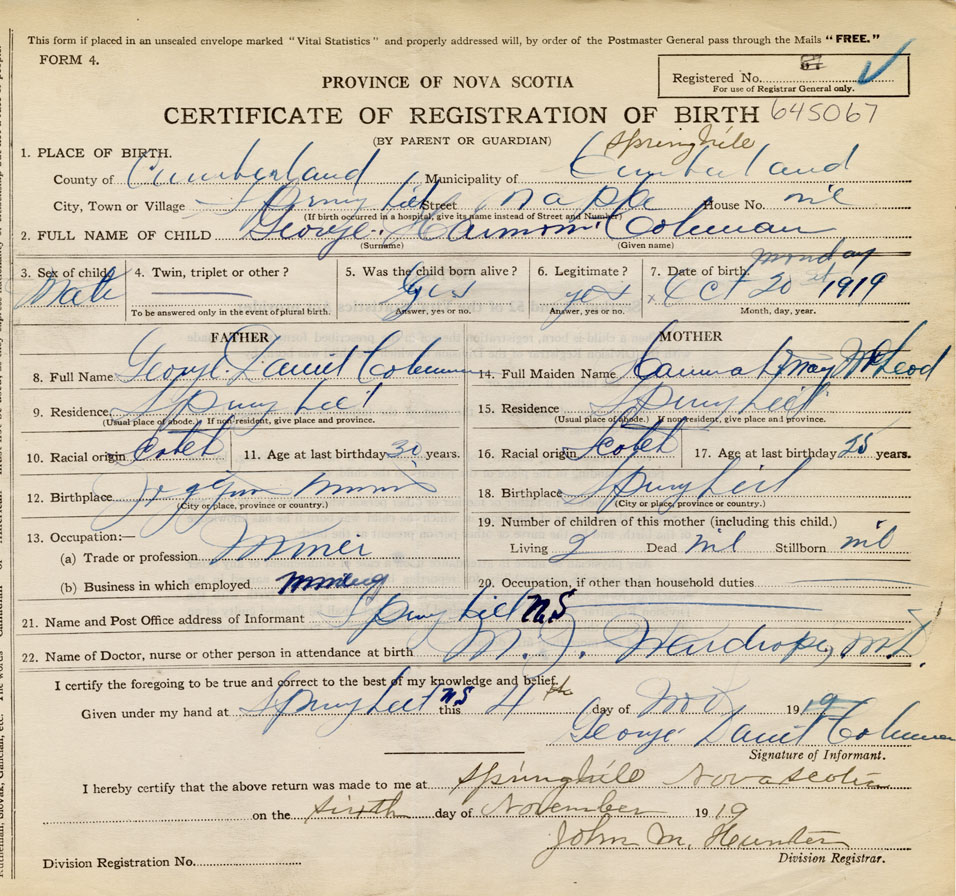 This form if placed in an unsealed envelope marked "Vital Statistics" and properly addressed will, by order of the Postmaster General pass through the Mails "FREE."
FORM 4.
Registered No.
For use of Registrar General only.
PROVINCE OF NOVA SCOTIA
CERTIFICATE OF REGISTRATION OF BIRTH 645067
(BY PARENT OR GUARDIAN)
Springhill
1. PLACE OF BIRTH.
County of Cumberland Municipality of Cumberland
City, Town or Village Springhill Street Maple House No. nil
(If birth occurred in a hospital, give its name instead of Street and Number)
2. FULL NAME OF CHILD George Coleman
(Surname) (Given name)
3. Sex of child Male 4. Twin, triplet or other? 5. Was the child born alive? Yes 6. Legitimate? yes 7. Date of birth. Monday Oct 20 1919
To be answered only in the event of plural birth. Answer, yes or no. Answer, yes or no. Month, day, year.
FATHER MOTHER
8. Full Name George Daniel Coleman 14. Full Maiden Name Hannah May McLeod
9. Residence. Springhill 15. Residence Springhill
(Usual place of abode.) If non-resident, give place and province. (Usual place of abode.) If non-resident, give place and province.
10. Racial origin Scotch 11. Age at last birthday 30 years. 16. Racial origin Scotch 17. Age at last birthday 25 years.
12. Birthplace Joggins Mines 18. Birthplace Springhill
(City or place, province or country.) (City or place, province or country.)
13. Occupation:— 19. Number of children of this mother (including this child.)
(a) Trade or profession Miner Living 2 Dead nil Stillborn nil
(b) Business in which employed mining 20. Occupation, if other than household duties
21. Name and Post Office address of Informant Springhill N.S
22. Name of Doctor, nurse or other person in attendance at birth M. J. Wardrope, M.D.
I certify the foregoing to be true and correct to the best of my knowledge and belief.
Given under my hand at Springhill NS this 4th day of Nov 1919
George Daniel Coleman
Signature of Informant.
I hereby certify that the above return was made to me at Springhill Nova Scotia
on the sixth day of November 1919
John M. Hunter
Division Registrar.
Division Registration No.